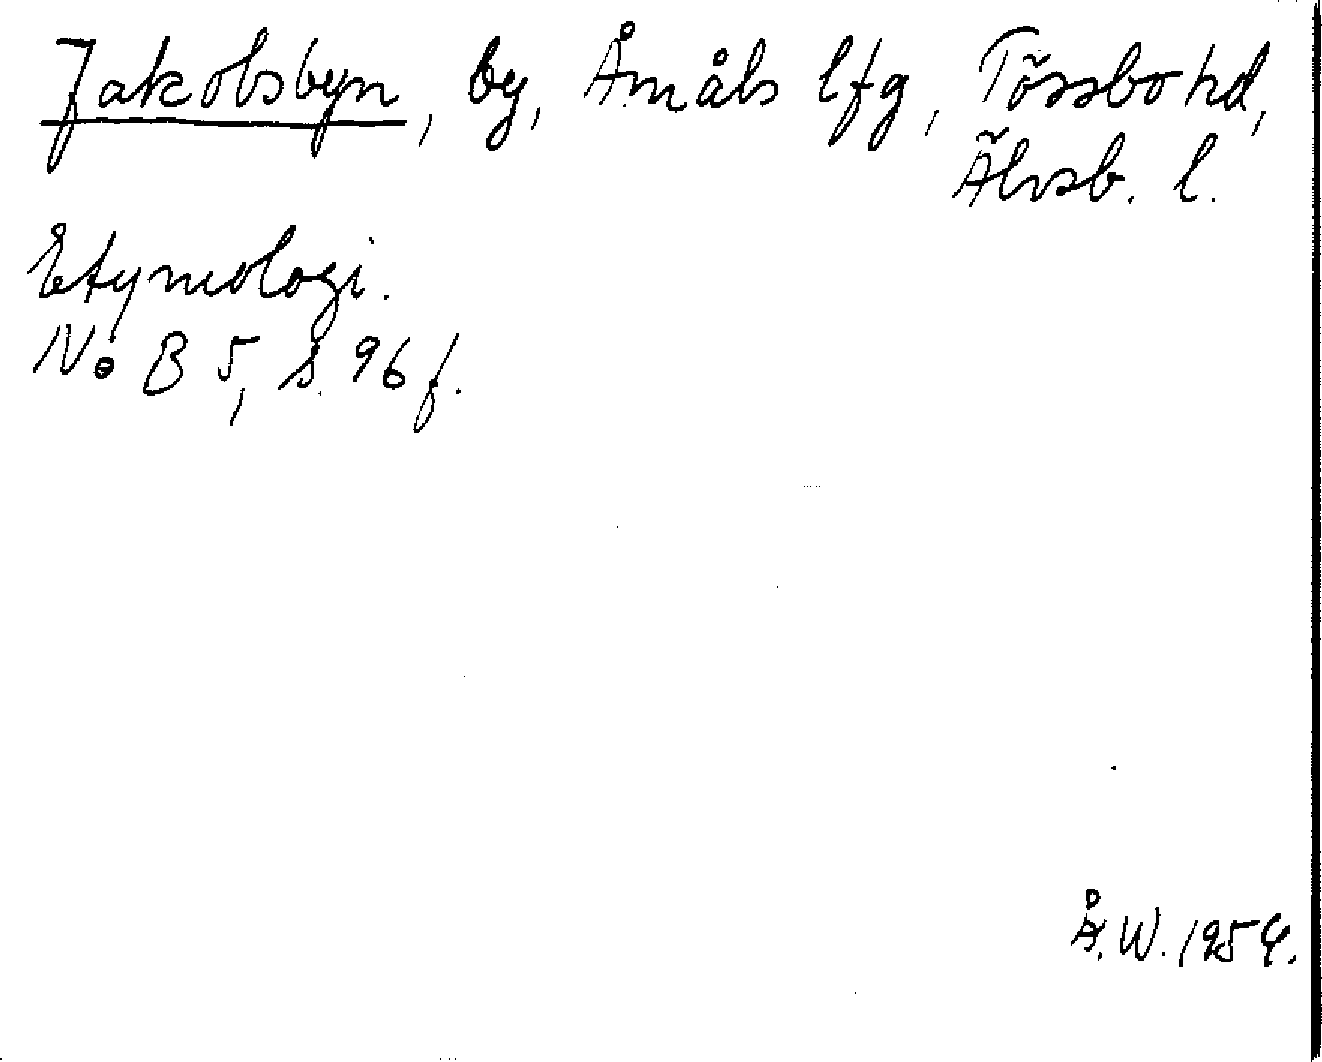 Jakobsbyn, by, Åmåls lfg, Tössbo hd,
Älvsb. l.
Etymologi.
No B 5, s. 96 f.
Å. W. 1954.